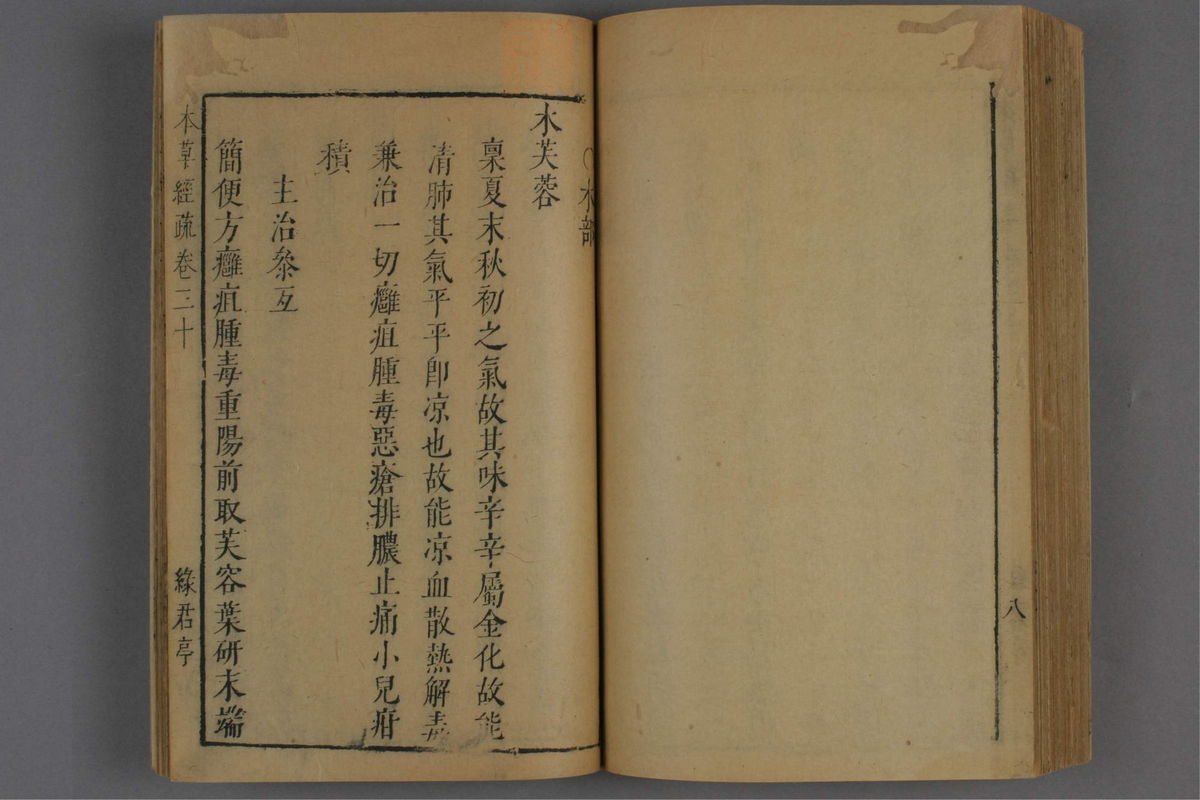 八
〇木部
木芙蓉
稟夏末秋初之氣故其味辛辛屬金化故能
清肺其氣平平卽凉也故能凉血散熱解毒
兼治一切癰疽腫毒惡瘡排膿止痛小兒疳
積
主治叅互
簡便方癰疽腫毒重陽前取芙容葉研末端
本草經疏卷三十
綠君亭